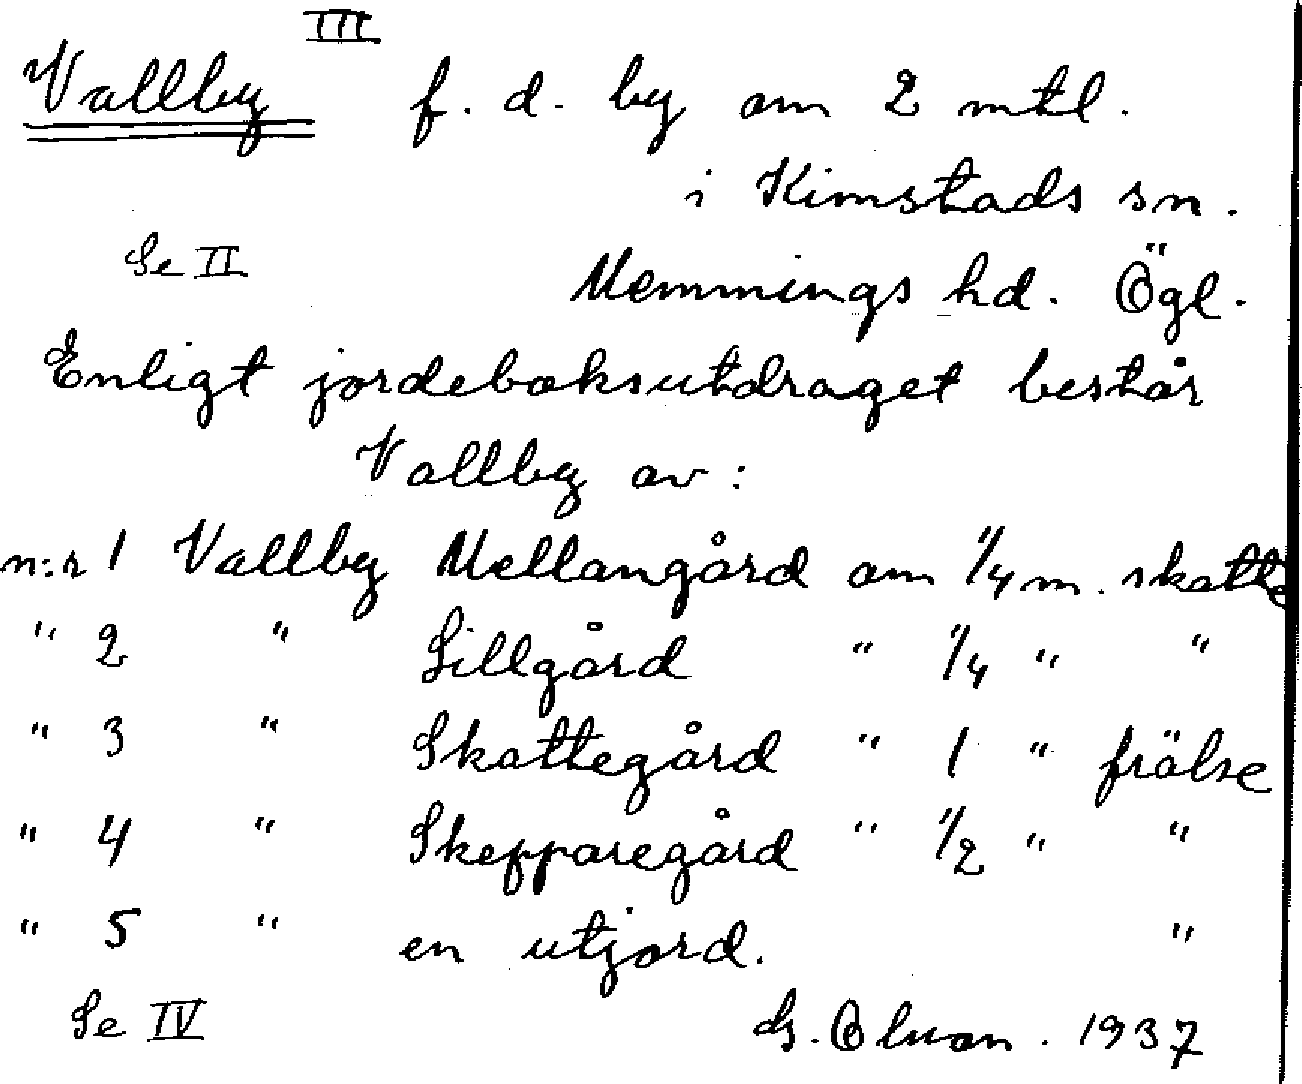 III
Vallby f. d. by om 2 mtl.
i Kimstads sn.
Se II Memmings hd. Ögl.
Enligt jordeboksutdraget består
Vallby av:
n:r 1 Vallby Mellangård om 1/4 m. skatte
" 2 " Lillgård " 1/4 " "
" 3 " Skattegård " 1 " frälse
" 4 " Skepparegård " 1/2 " "
" 5 " en utjord. "
Se IV G. . 1937